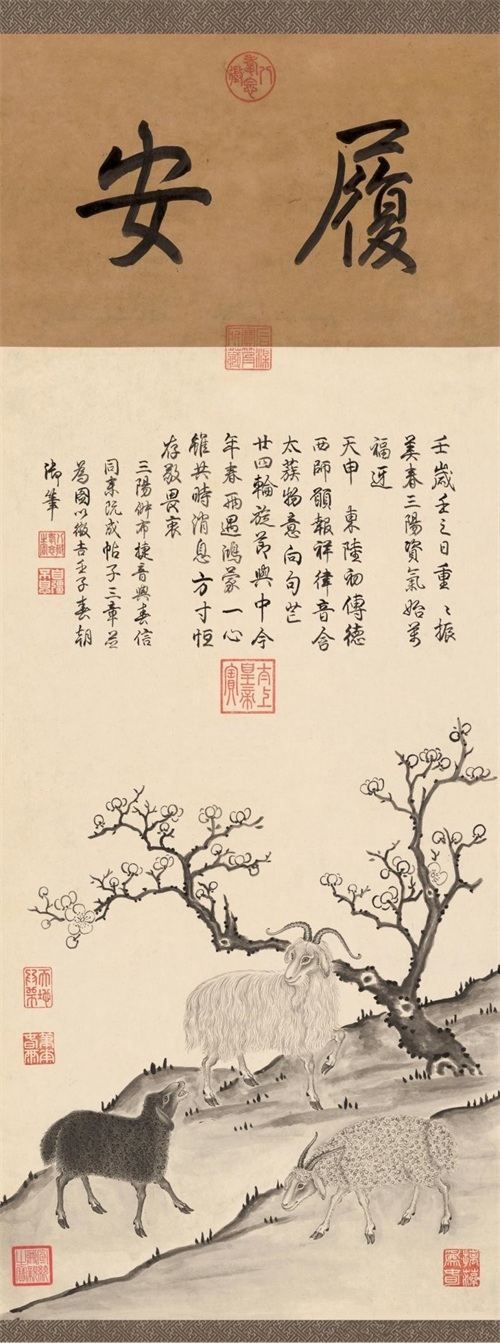 履安
壬歲壬之日重〻振
美春三陽資氣始萬
福迓
天申 東陸初傳德
西師願報祥律音含
太蔟物意向句芒
廿四輪旋節與中今
年春兩遇鴻蒙一心
雖共時消息方寸恒
存敬畏衷
三陽 市捷音與春信
同來既成帖子三章並
為圖以徵吉壬子春朝
御筆
太上皇帝之寶